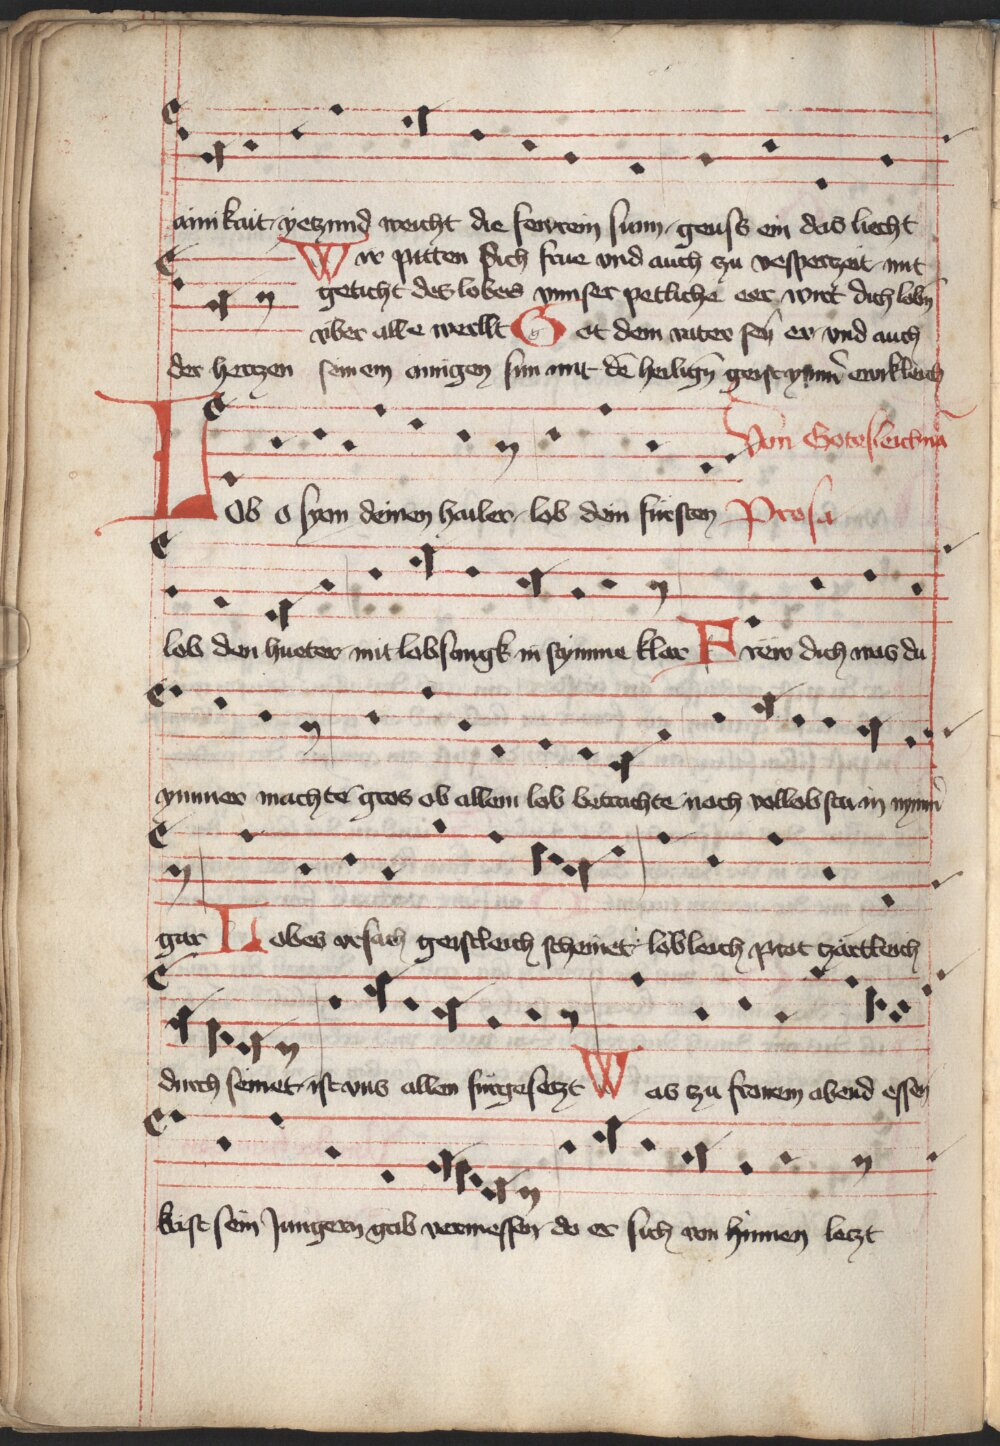 ainikait yetzund weicht die fewrein sunn geuss ein das liecht
Wir pitten dich frue vnd auch zu vesperzeit mit
geticht des lobes vnnser petliche eer wirt dich lobn̄
vber alle werllt Got dem vater sey er vnd auch
der hertzen seinem ainigen sun mit dē heilign̄ geist ewikleich
Von Gotsleichnā
Lob o syon deinen hailer lob dein fürsten Prosa
lob den hueter mit lobsangk in stymme klar Frew dich was du
ymmer machte gros ob allem lob betrachte noch vollobstu in nymm̄
gar Lobes vrsach geistleich scheinet lobleich prot zärtleich
durch feinet ist vns allen fürgesetzt Was zu fronem abend essen
krist sein Jungern gab vermessen do er sich von hinnen letzt